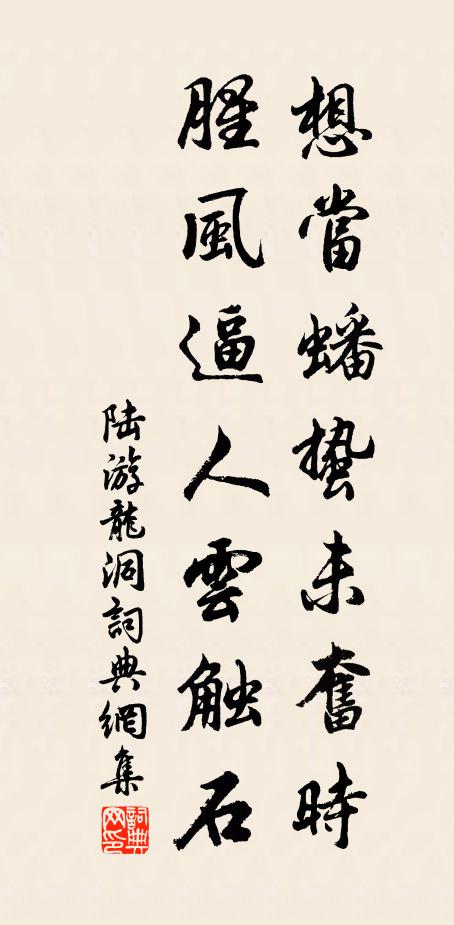 想當蟠蟄未奮時
腥風逼人雲触石
陸游龍洞詞典網集
詞典網印